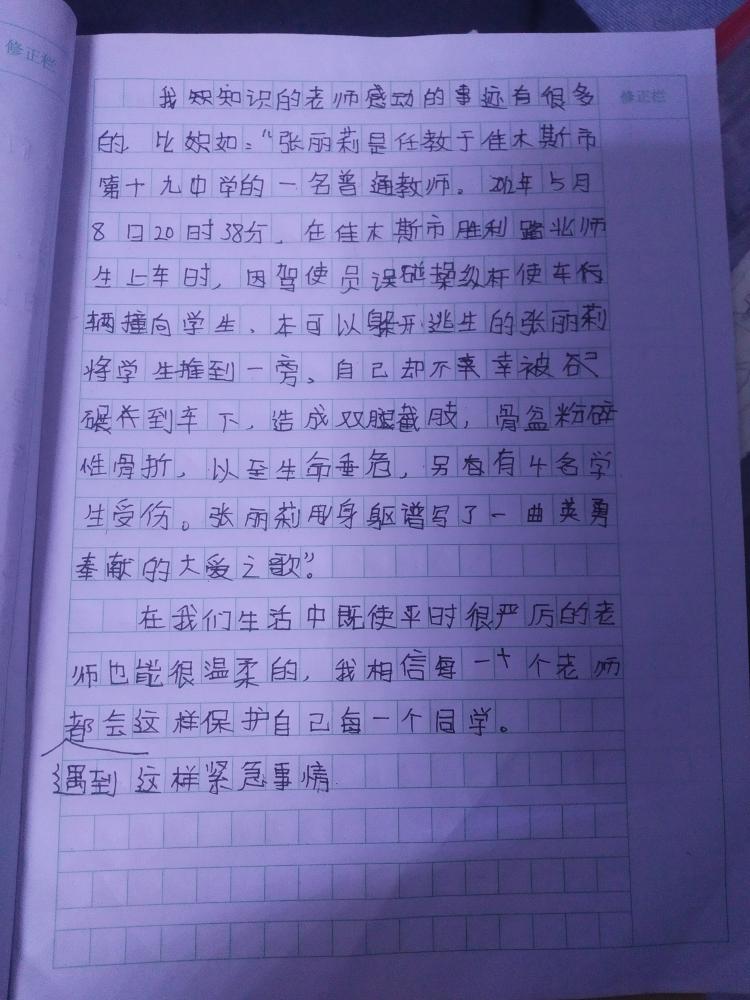 修正栏
修正栏
我知识的老师感动的事还有很多
的，比如：“张丽莉是任教于佳木斯市
第十九中学的一名普通教师。2012年5月
8日20时38分，在佳木斯市胜利路北师
生上车时，因驾使员误碰操纵杆使车
辆撞向学生、本可以躲开逃生的张丽莉
将学生推到一旁。自己却不幸被
碾到车下，造成双腿截肢，骨盆粉碎
性骨折，以至生命垂危，另有4名学
生受伤。张丽莉用身躯谱写了一曲英勇
奉献的大爱之歌”。
在我们生活中既使平时很严厉的老
师也能很温柔的，我相信每一个老师
都会这样保护自己每一个同学。
遇到这样紧急事情